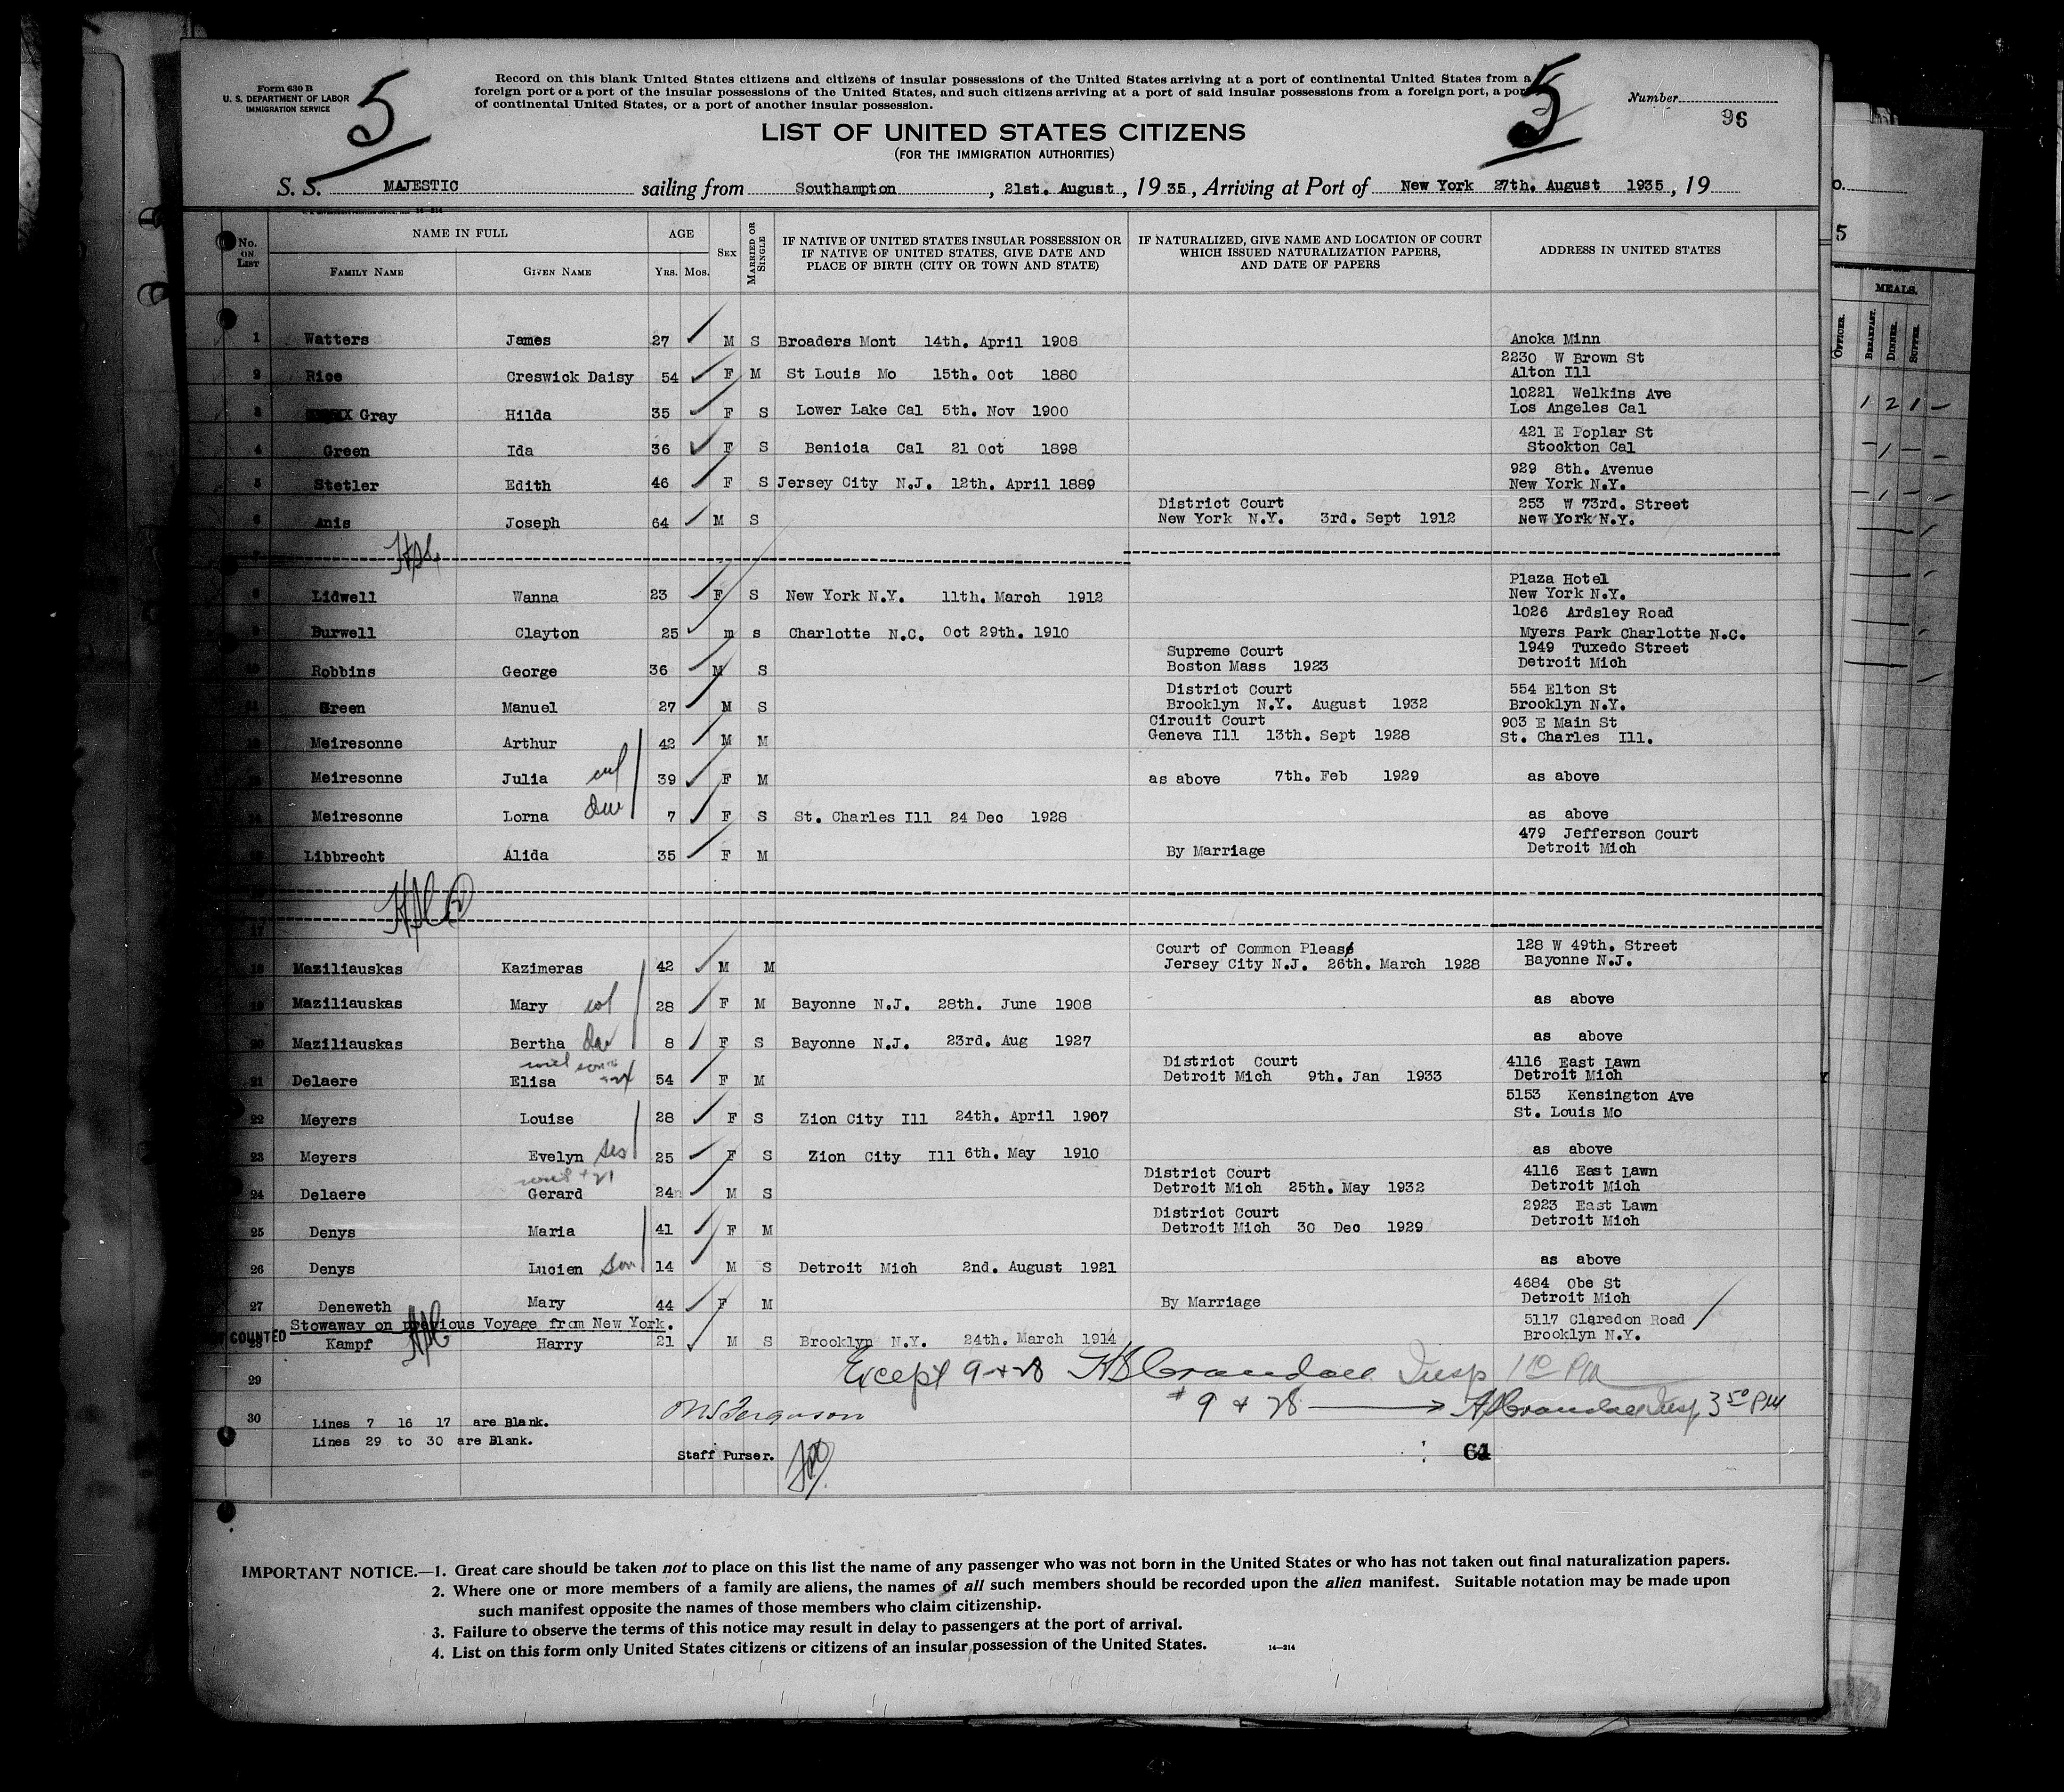 Form 630 B
U. S. DEPARTMENT OF LABOR
IMMIGRATION SERVICE
5
Record on this blank United States citizens and citizens of insular possessions of the United States arriving at a port of continental United States from a
foreign port or a port of the insular possessions of the United States, and such citizens arriving at a port of said insular possessions from a foreign port, a port
of continental United States, or a port of another insular possession.
5
Number
96
LIST OF UNITED STATES CITIZENS
(FOR THE IMMIGRATION AUTHORITIES)
S. S. MAJESTIC sailing from Southampton , 21st. August , 19 35, Arriving at Port of New York 27th. August 1935 , 19
No. ON LIST
NAME IN FULL
FAMILY NAME GIVEN NAME
AGE
YRS. MOS.
SEX
MARRIED OR SINGLE
IF NATIVE OF UNITED STATES INSULAR POSSESSION OR
IF NATIVE OF UNITED STATES, GIVE DATE AND
PLACE OF BIRTH (CITY OR TOWN AND STATE)
IF NATURALIZED, GIVE NAME AND LOCATION OF COURT
WHICH ISSUED NATURALIZATION PAPERS,
AND DATE OF PAPERS
ADDRESS IN UNITED STATES
1 Watters James 27 M S Broaders Mont 14th. April 1908 Anoka Minn
2230 W Brown St
2 Rice Creswick Daisy 54 F M St Louis Mo 15th. Oct 1880 Alton Ill
10221 Welkins Ave
3 Gray Hilda 35 F S Lower Lake Cal 5th. Nov 1900 Los Angeles Cal
421 E Poplar St
4 Green Ida 36 F S Benicia Cal 21 Oct 1898 Stockton Cal
929 8th. Avenue
5 Stetler Edith 46 F S Jersey City N.J. 12th. April 1889 New York N.Y.
District Court 253 W 73rd. Street
6 Anis Joseph 64 M S New York N.Y. 3rd. Sept 1912 New York N.Y.
7
Plaza Hotel
8 Lidwell Wanna 23 F S New York N.Y. 11th. March 1912 New York N.Y.
1026 Ardsley Road
9 Burwell Clayton 25 m s Charlotte N.C. Oct 29th. 1910 Myers Park Charlotte N.C.
Supreme Court 1949 Tuxedo Street
10 Robbins George 36 M S Boston Mass 1923 Detroit Mich
District Court 554 Elton St
11 Green Manuel 27 M S Brooklyn N.Y. August 1932 Brooklyn N.Y.
Circuit Court 903 E Main St
12 Meiresonne Arthur 42 M M Geneva Ill 13th. Sept 1928 St. Charles Ill.
13 Meiresonne Julia 39 F M as above 7th. Feb 1929 as above
14 Meiresonne Lorna 7 F S St. Charles Ill 24 Dec 1928 as above
479 Jefferson Court
15 Libbrecht Alida 35 F M By Marriage Detroit Mich
16
17
Court of Common Pleas 128 W 49th. Street
18 Maziliauskas Kazimeras 42 M M Jersey City N.J. 26th. March 1928 Bayonne N.J.
19 Maziliauskas Mary 28 F M Bayonne N.J. 28th. June 1908 as above
20 Maziliauskas Bertha 8 F S Bayonne N.J. 23rd. Aug 1927 as above
District Court 4116 East Lawn
21 Delaere Elisa 54 F M Detroit Mich 9th. Jan 1933 Detroit Mich
5153 Kensington Ave
22 Meyers Louise 28 F S Zion City Ill 24th. April 1907 St. Louis Mo
23 Meyers Evelyn sis 25 F S Zion City Ill 6th. May 1910 as above
District Court 4116 East Lawn
24 Delaere Gerard 24 M S Detroit Mich 25th. May 1932 Detroit Mich
District Court 2923 East Lawn
25 Denys Maria 41 F M Detroit Mich 30 Dec 1929 Detroit Mich
26 Denys Lucien son 14 M S Detroit Mich 2nd. August 1921 as above
4684 Obe St
27 Deneweth Mary 44 F M By Marriage Detroit Mich
Stowaway on previous Voyage from New York. 5117 Claredon Road
COUNTED
28 Kampf Harry 21 M S Brooklyn N.Y. 24th. March 1914 Brooklyn N.Y.
29 Except 9 + 28 HSCrandall Insp 1 10 PM
# 9 & 28 HSCrandall Insp 3 50 PM
30 Lines 7 16 17 are Blank.
Lines 29 to 30 are Blank.
Ferguson
Staff Purser.
64
IMPORTANT NOTICE.—1. Great care should be taken not to place on this list the name of any passenger who was not born in the United States or who has not taken out final naturalization papers.
2. Where one or more members of a family are aliens, the names of all such members should be recorded upon the alien manifest. Suitable notation may be made upon
such manifest opposite the names of those members who claim citizenship.
3. Failure to observe the terms of this notice may result in delay to passengers at the port of arrival.
4. List on this form only United States citizens or citizens of an insular possession of the United States. 14—214
5
MEALS.
OFFICER. BREAKFAST. DINNER. SUPPER.